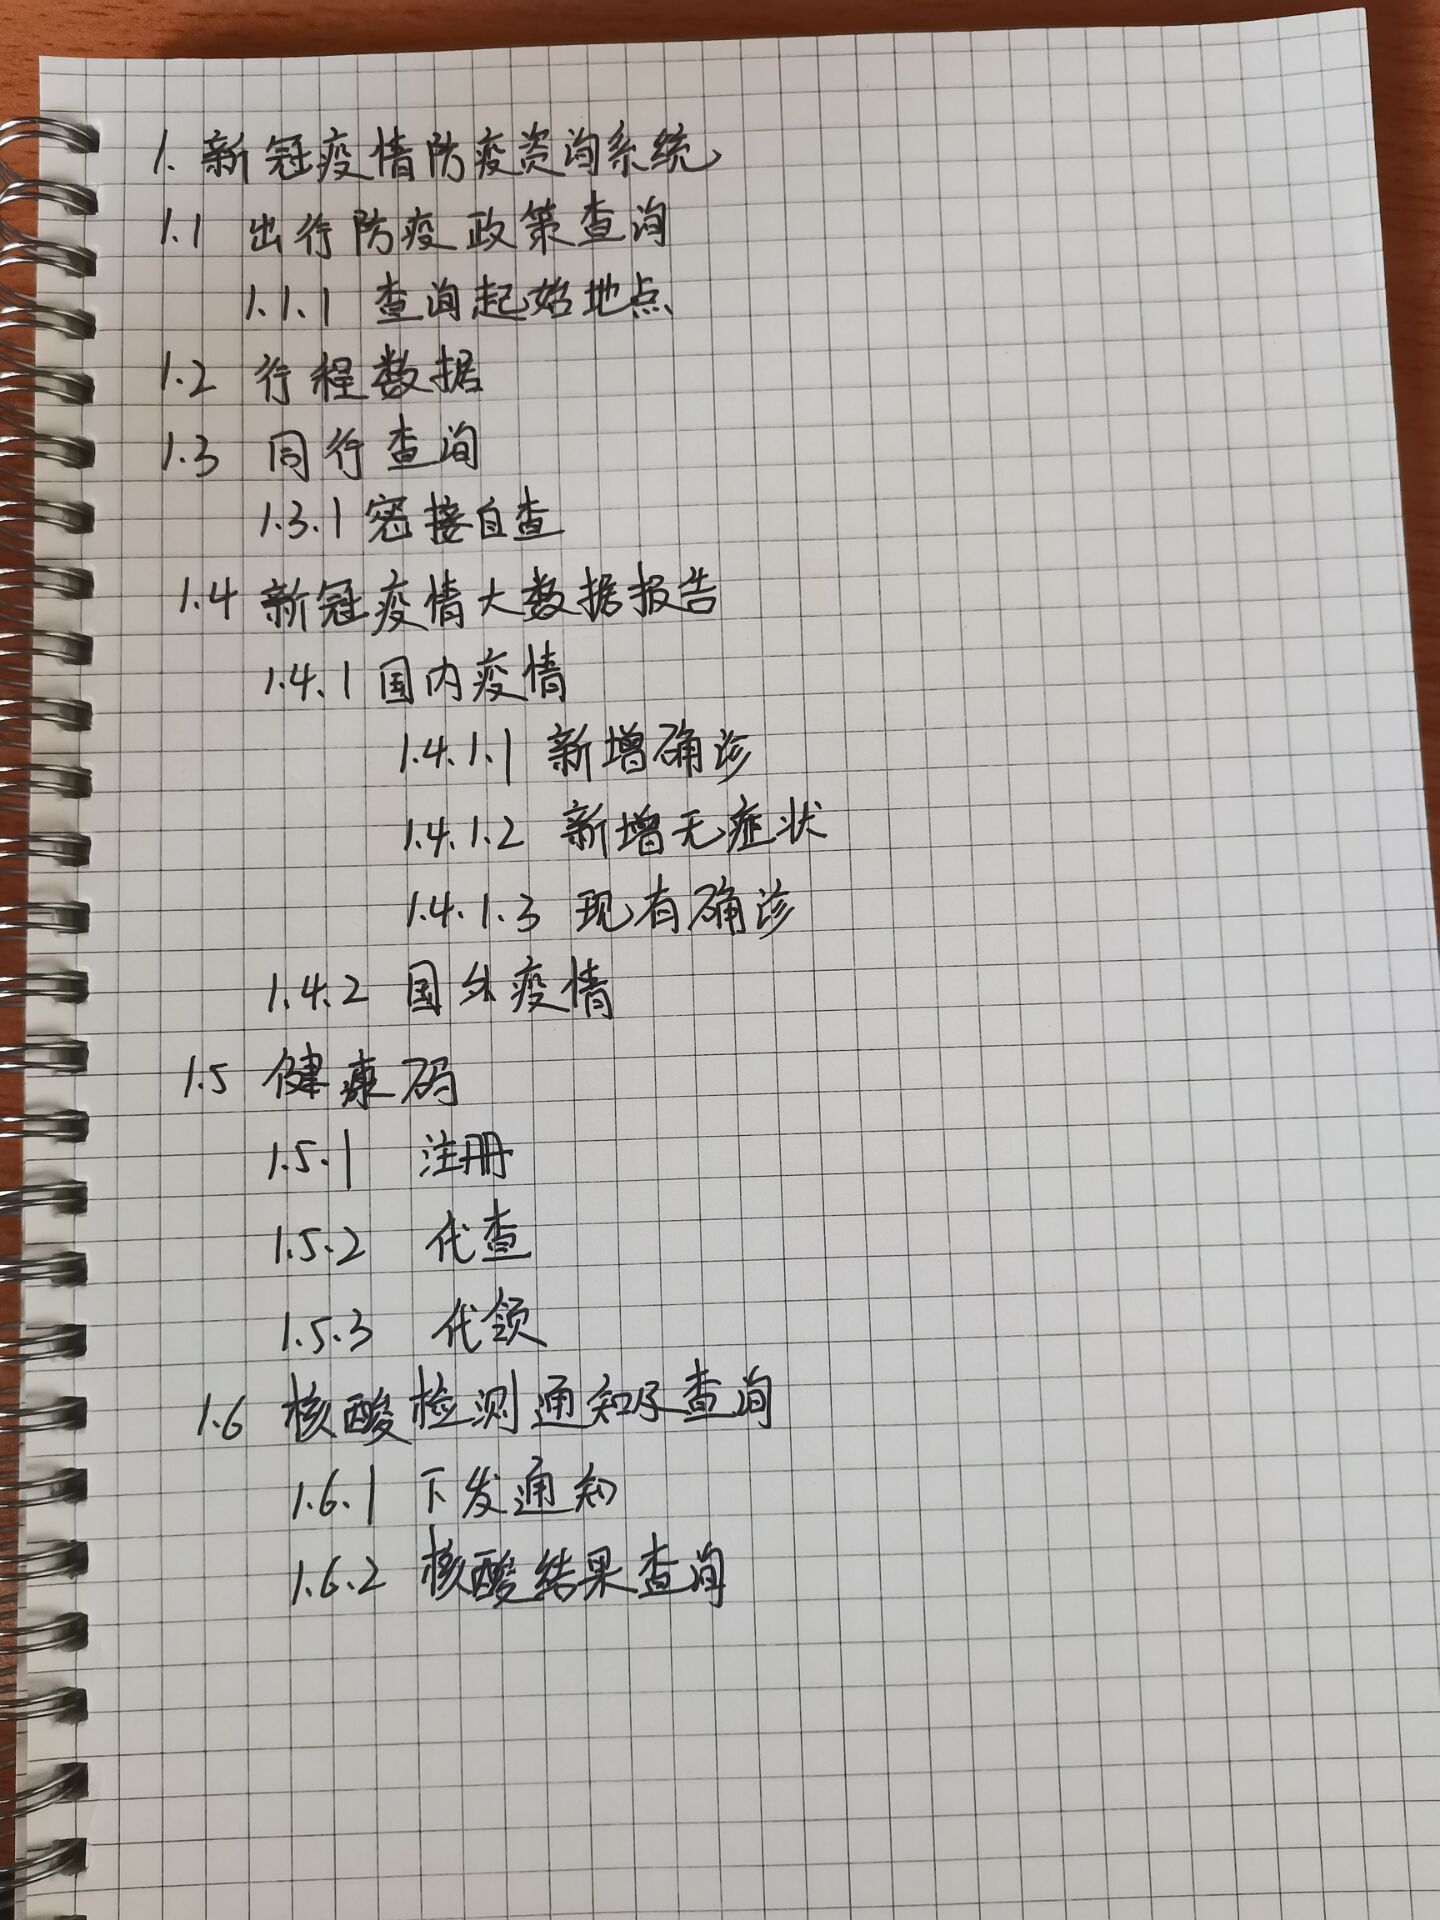 1. 新冠疫情防疫资询系统
1.1 出行防疫政策查询
1.1.1 查询起始地点
1.2 行程数据
1.3 同行查询
1.3.1 密接自查
1.4 新冠疫情大数据报告
1.4.1 国内疫情
1.4.1.1 新增确诊
1.4.1.2 新增无症状
1.4.1.3 现有确诊
1.4.2 国外疫情
1.5 健康码
1.5.1 注册
1.5.2 代查
1.5.3 代领
1.6 核酸检测通知及查询
1.6.1 下发通知
1.6.2 核酸结果查询